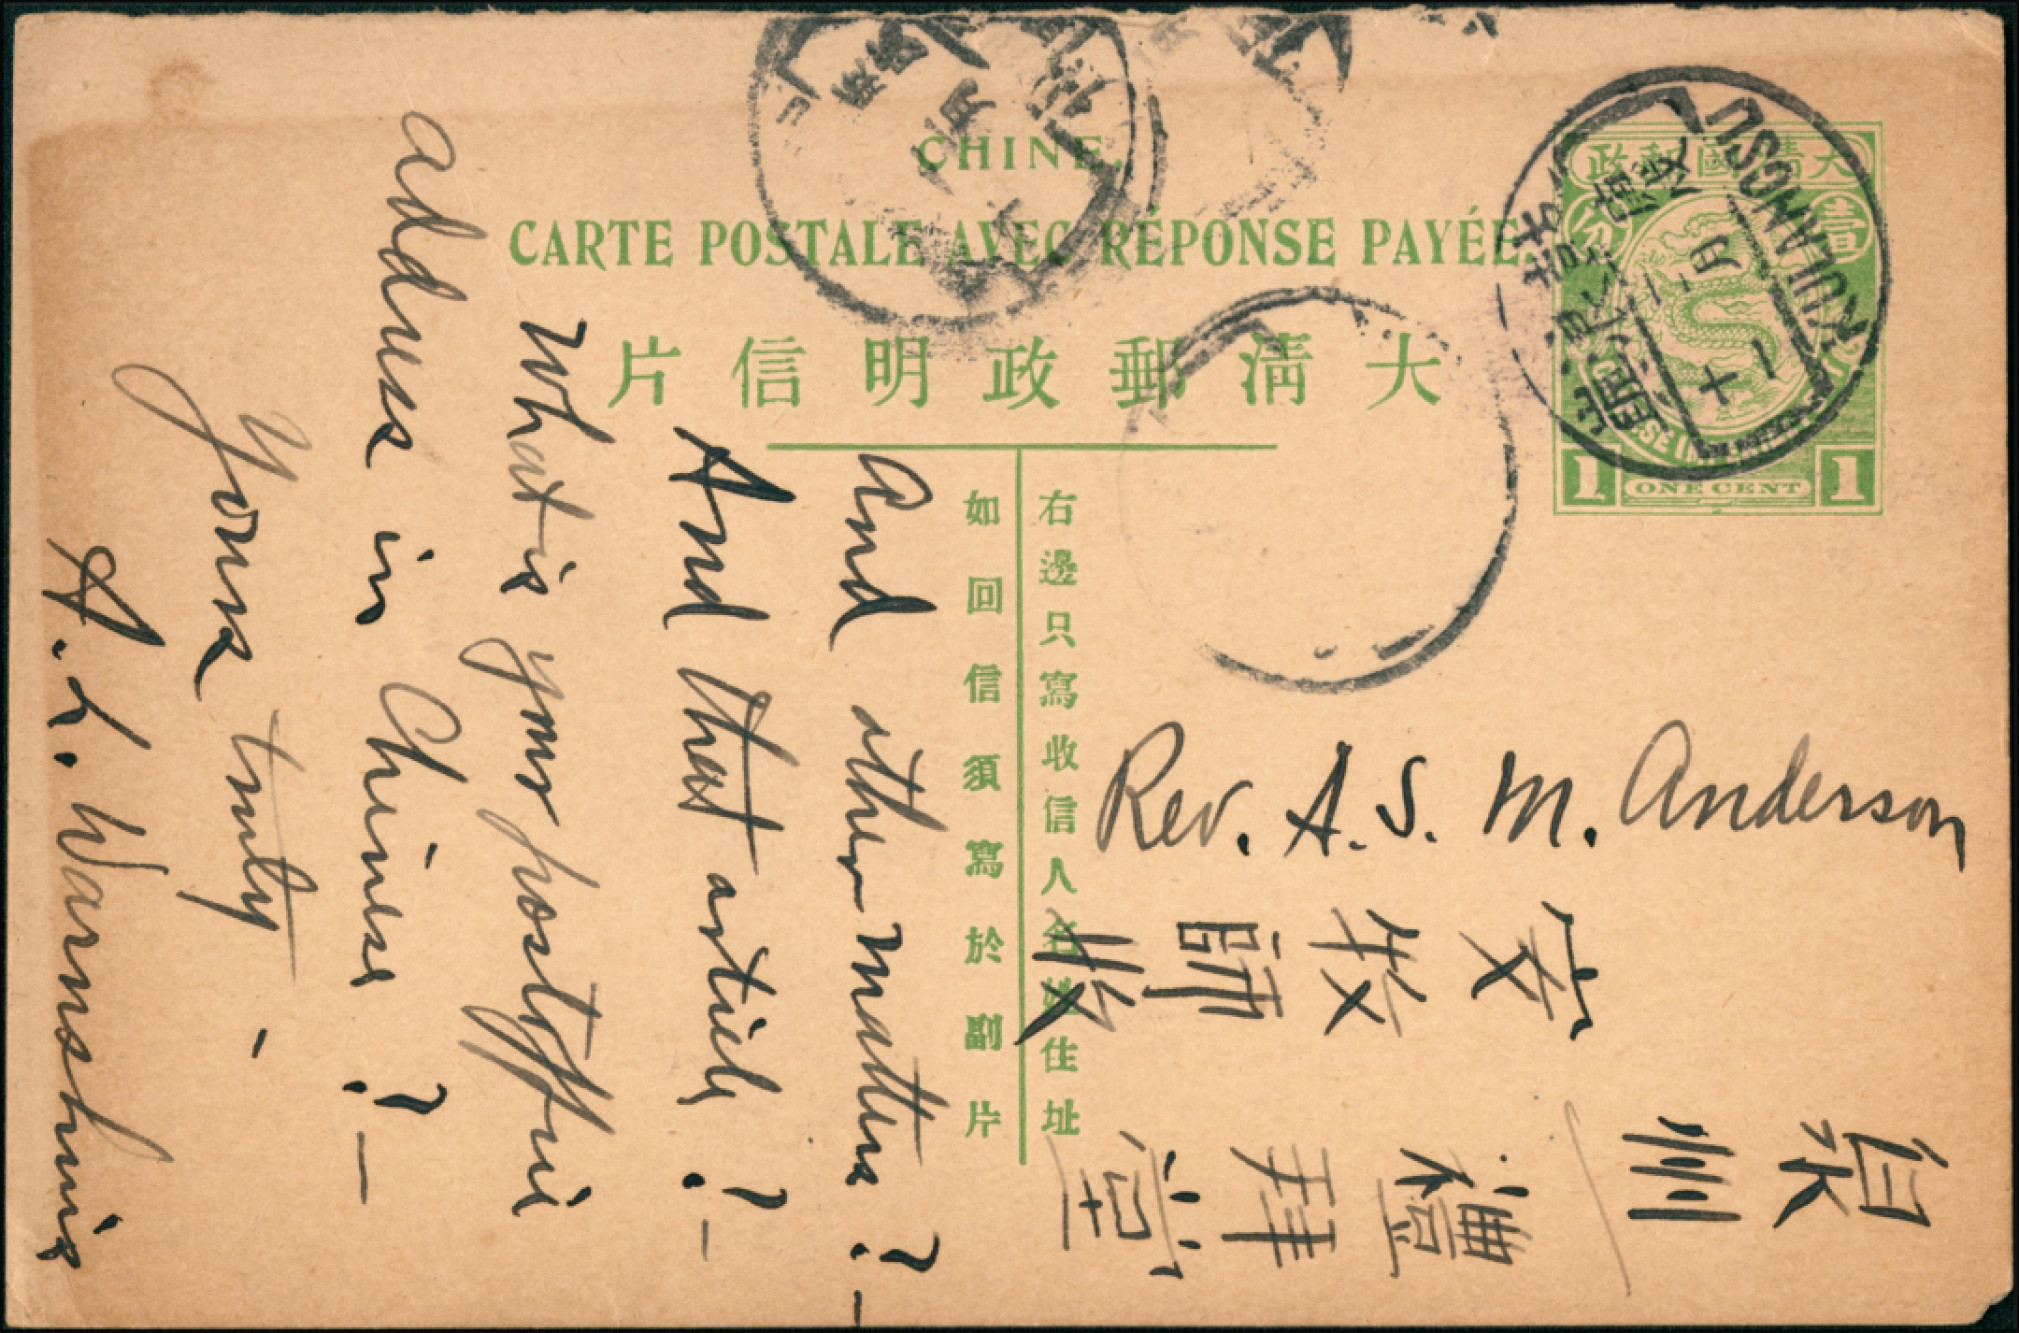 CHINE,
CARTE POSTALE AVEC RÉPONSE PAYÉE.
大清郵政明信片
大清國郵政
壹
分
CHINESE IMPERIAL
1 ONE CENT 1
KULANGSU
十一月
右邊只寫收信人名姓住址
如回信須寫於副片
Rev. A. S. M. Anderson
泉州
禮拜堂
安牧師收
and other matters? –
And that article? –
What is your postoffice
address in Chinese? –
Yours truly –
A. L. Warnshuis